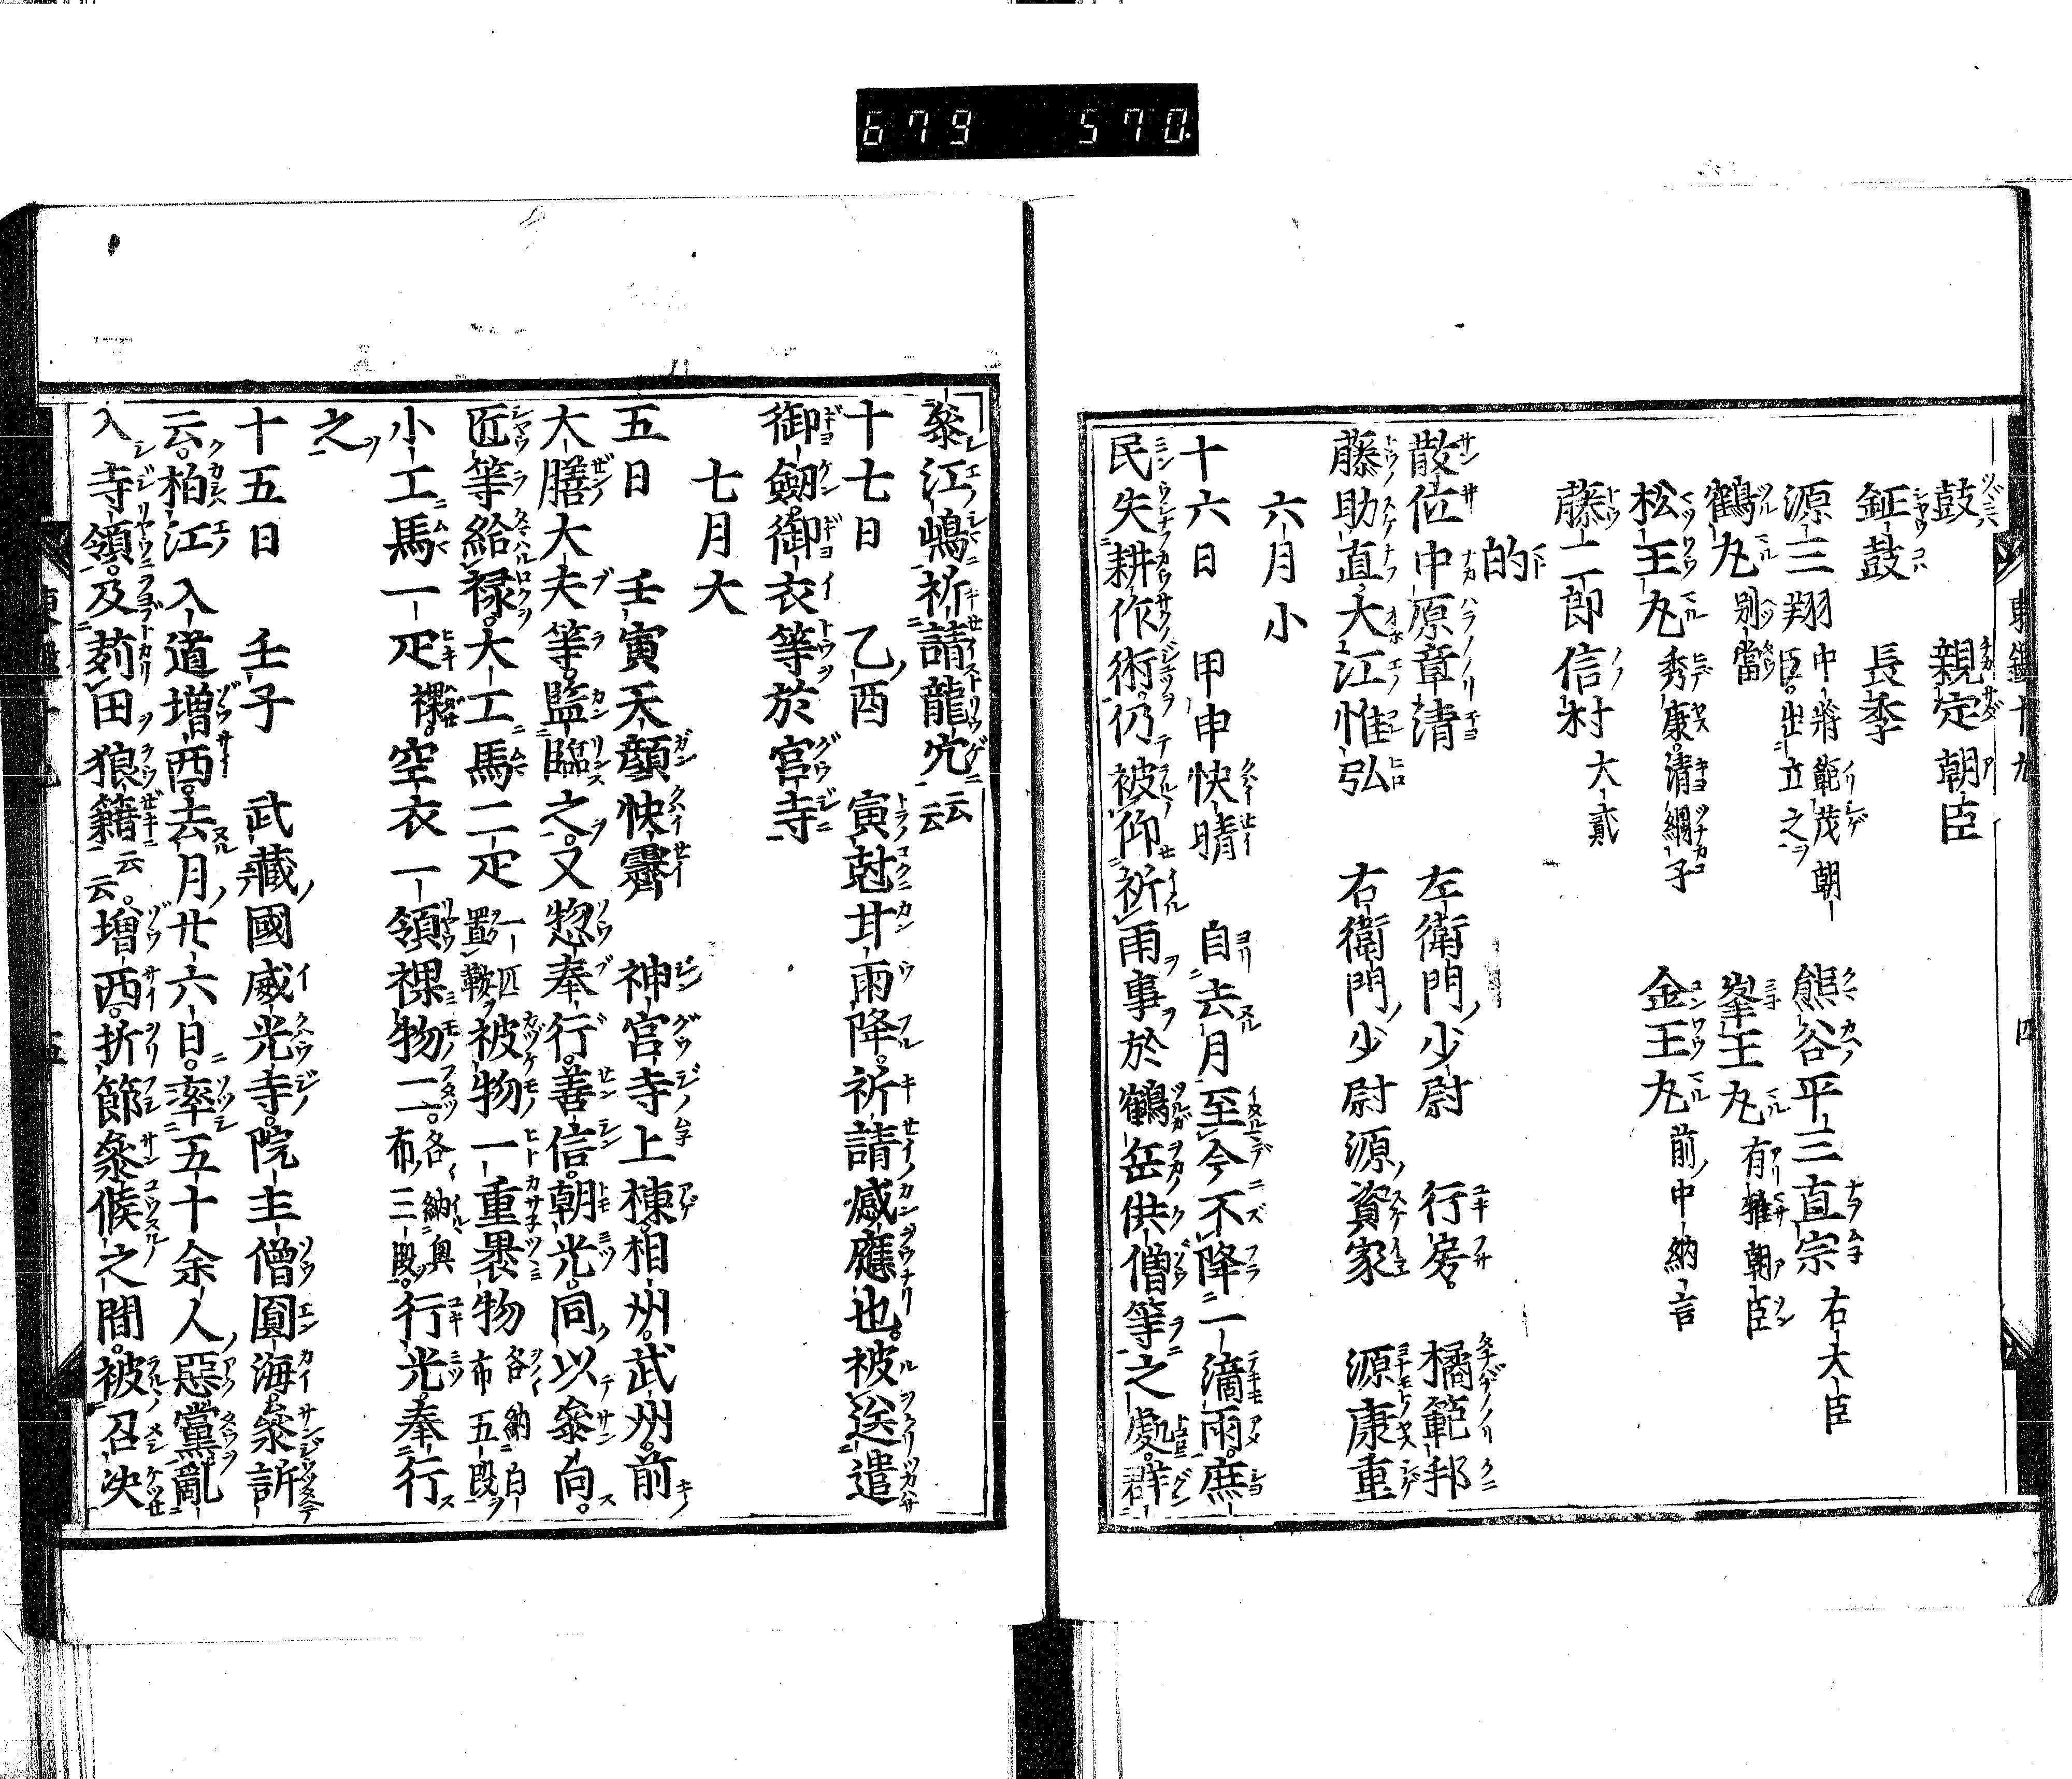 679 570
東鑑十九 四
鼓 親定朝臣
鉦鼓 長季
源三翔 中將範茂朝臣。出立之 熊谷平三直宗 右大臣
鶴丸 別當 峯王丸 有雅朝臣
松王丸 秀康。清綱子 金王丸 前中納言
藤二郎信村 大貳
的
散位中原章清 左衛門少尉 行房。 橘範邦
藤助直。大江惟弘 右衛門少尉源資家 源康重
六月小
十六日 甲申快晴 自去月至今不降一滴雨。庶
民失耕作術。仍被仰祈雨事於鶴岳供僧等之處。群
參江嶋祈請龍穴云云
十七日 乙酉 寅尅甘雨降。祈請感應也。被送遣
御劔御衣等於宮寺
七月大
五日 壬寅天顏快霽 神宮寺上棟。相州。武州。前
大膳大夫等。監臨之。又惣奉行。善信。朝光。同以參向。
匠等給禄。大工馬二疋 一匹置鞍 被物一重裹物 各納白布五段
小工馬一疋 裸。 空衣一領裸物二。各納奥布三段。行光奉行
之
十五日 壬子 武藏國威光寺。院主僧圓海。參訴
云。柏江入道増西。去月廿六日。率五十余人惡黨亂
入寺領。及苅田狼籍云云。増西。折節參候之間。被召決